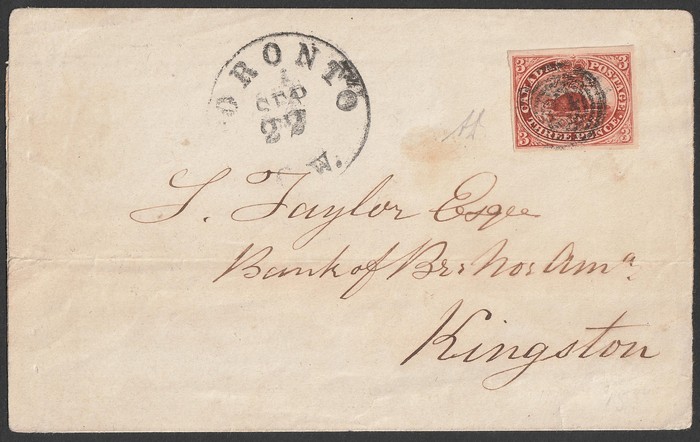 TORONTO
1
SEP
27
W.
3 CANADA POSTAGE 3
3 THREE PENCE 3
S. Taylor Esqre
Bank of Br: Nor: Ama.
Kingston